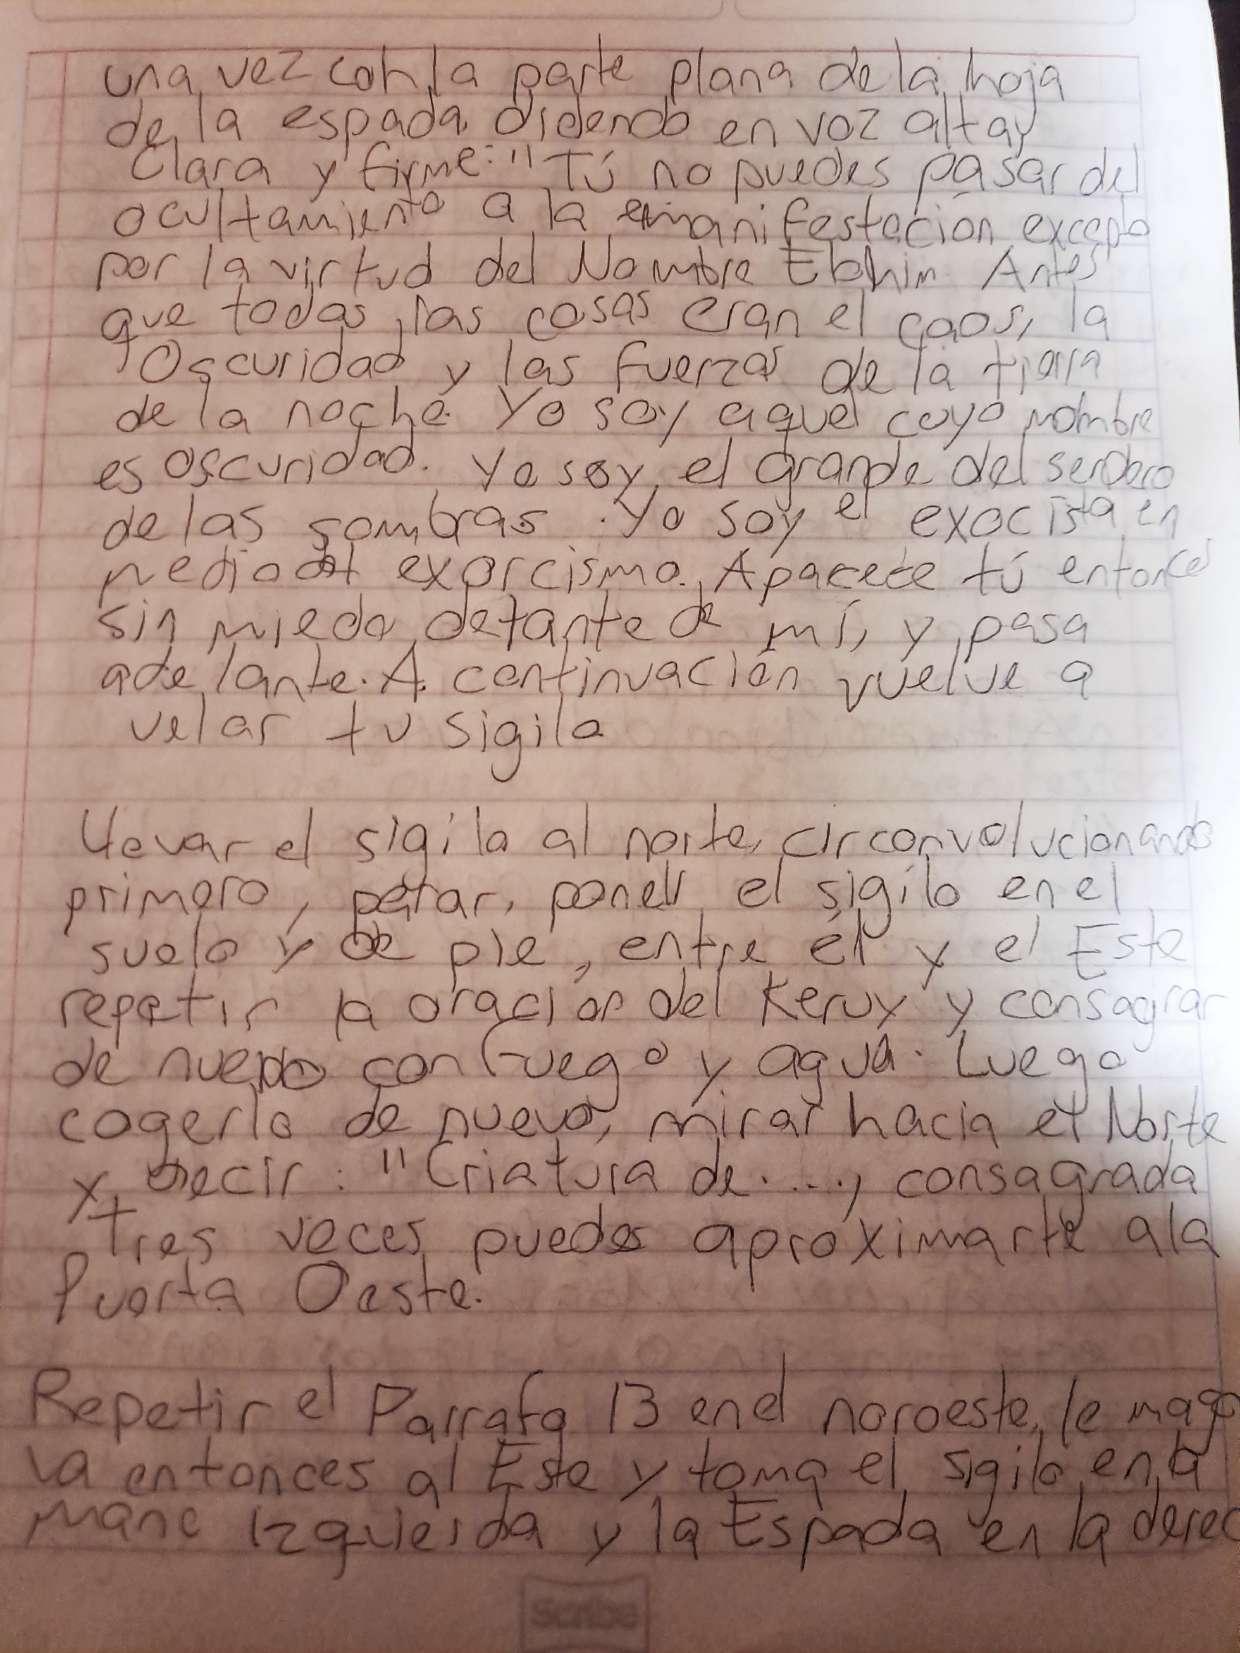 una vez con la parte plana de la hoja
de la espada diciendo en voz alta y
Clara y firme: "Tú no puedes pasar del
ocultamiento a la manifestación excepto
por la virtud del Nombre Elohim. Antes
que todas las cosas eran el caos, la
Oscuridad y las fuerzas de la tiarra
de la noche. Yo soy aquel cuyo nombre
es oscuridad. Yo soy el grande del sendero
de las sombras. Yo soy el exocista en
medio del exorcismo. Aparece tú entonces
sin miedo delante de mí, y pasa
adelante. A continuación vuelve a
velar tu sigilo
Llevar el sigilo al norte, circonvolucionando
primero, parar, poner el sigilo en el
suelo y de pie, entre él y el Este
repetir la oración del Kerux y consagrar
de nuevo con fuego y agua. Luego
cogerlo de nuevo, mirar hacia el Norte
y decir: "Criatura de...., consagrada
tres veces puedes aproximarte a la
Puerta Oeste.
Repetir el Parrafo 13 en el noroeste, le mago
va entonces al Este y toma el sigilo en la
mano izquierda y la Espada en la derec
Scribe